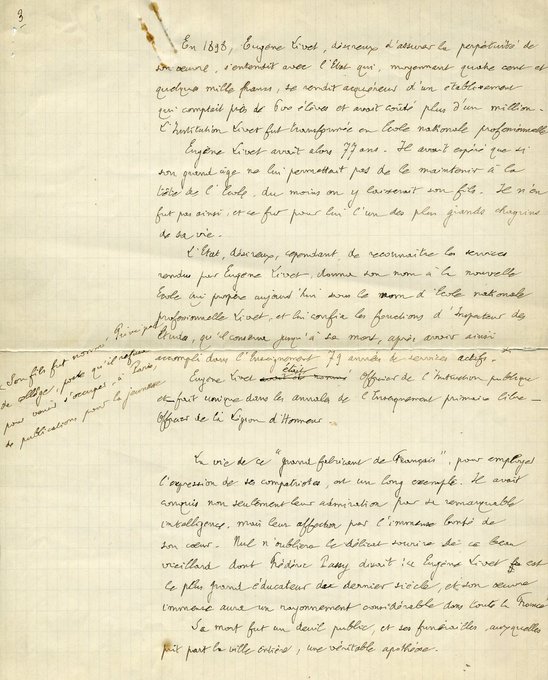 3
En 1898, Eugène Livet, désireux d'assurer la perpétuité de
son œuvre, s'entendit avec l'Etat qui, moyennant quatre cent et
quelques mille francs, se rendit acquéreur d'un établissement
qui comptait près de 600 élèves et avait coûté plus d'un million.
L'Institution Livet fut transformée en Ecole nationale professionnelle
Eugène Livet avait alors 77 ans. Il avait espéré que si
son grand âge ne lui permettait pas de le maintenir à la
tête de l'Ecole, du moins on y laisserait son fils. Il n'en
fut pas ainsi, et ce fut pour lui l'un des plus grands chagrins
de sa vie.
L'Etat, désireux, cependant, de reconnaître les services
rendus par Eugène Livet, donna son nom à la nouvelle
Ecole qui prospère aujourd'hui sous le nom d'Ecole nationale
professionnelle Livet, et lui confia les fonctions d'Inspecteur des
Etudes, qu'il conserva jusqu'à sa mort, après avoir ainsi
accompli dans l'Enseignement 79 années de services actifs.
Son fils fut nommé Principal
de collège, poste qu'il refusa
pour venir s'occuper, à Paris,
de publications pour la jeunesse
Eugène Livet était Officier de l'Instruction publique
et - fait unique dans les annales de l'Enseignement primaire libre -
Officier de la Légion d'Honneur
La vie de ce "grand fabricant de Français", pour employer
l'expression de ses compatriotes, est un long exemple. Il avait
conquis non seulement leur admiration par sa remarquable
intelligence, mais leur affection par l'immense bonté de
son cœur. Nul n'oubliera le délicat sourire de ce beau
vieillard dont Frédéric Passy disait : "Eugène Livet est
le plus grand éducateur du dernier siècle, et son œuvre
immense aura un rayonnement considérable dans toute la France
Sa mort fut un deuil public, et ses funérailles, auxquelles
prit part la ville entière, une véritable apothéose.